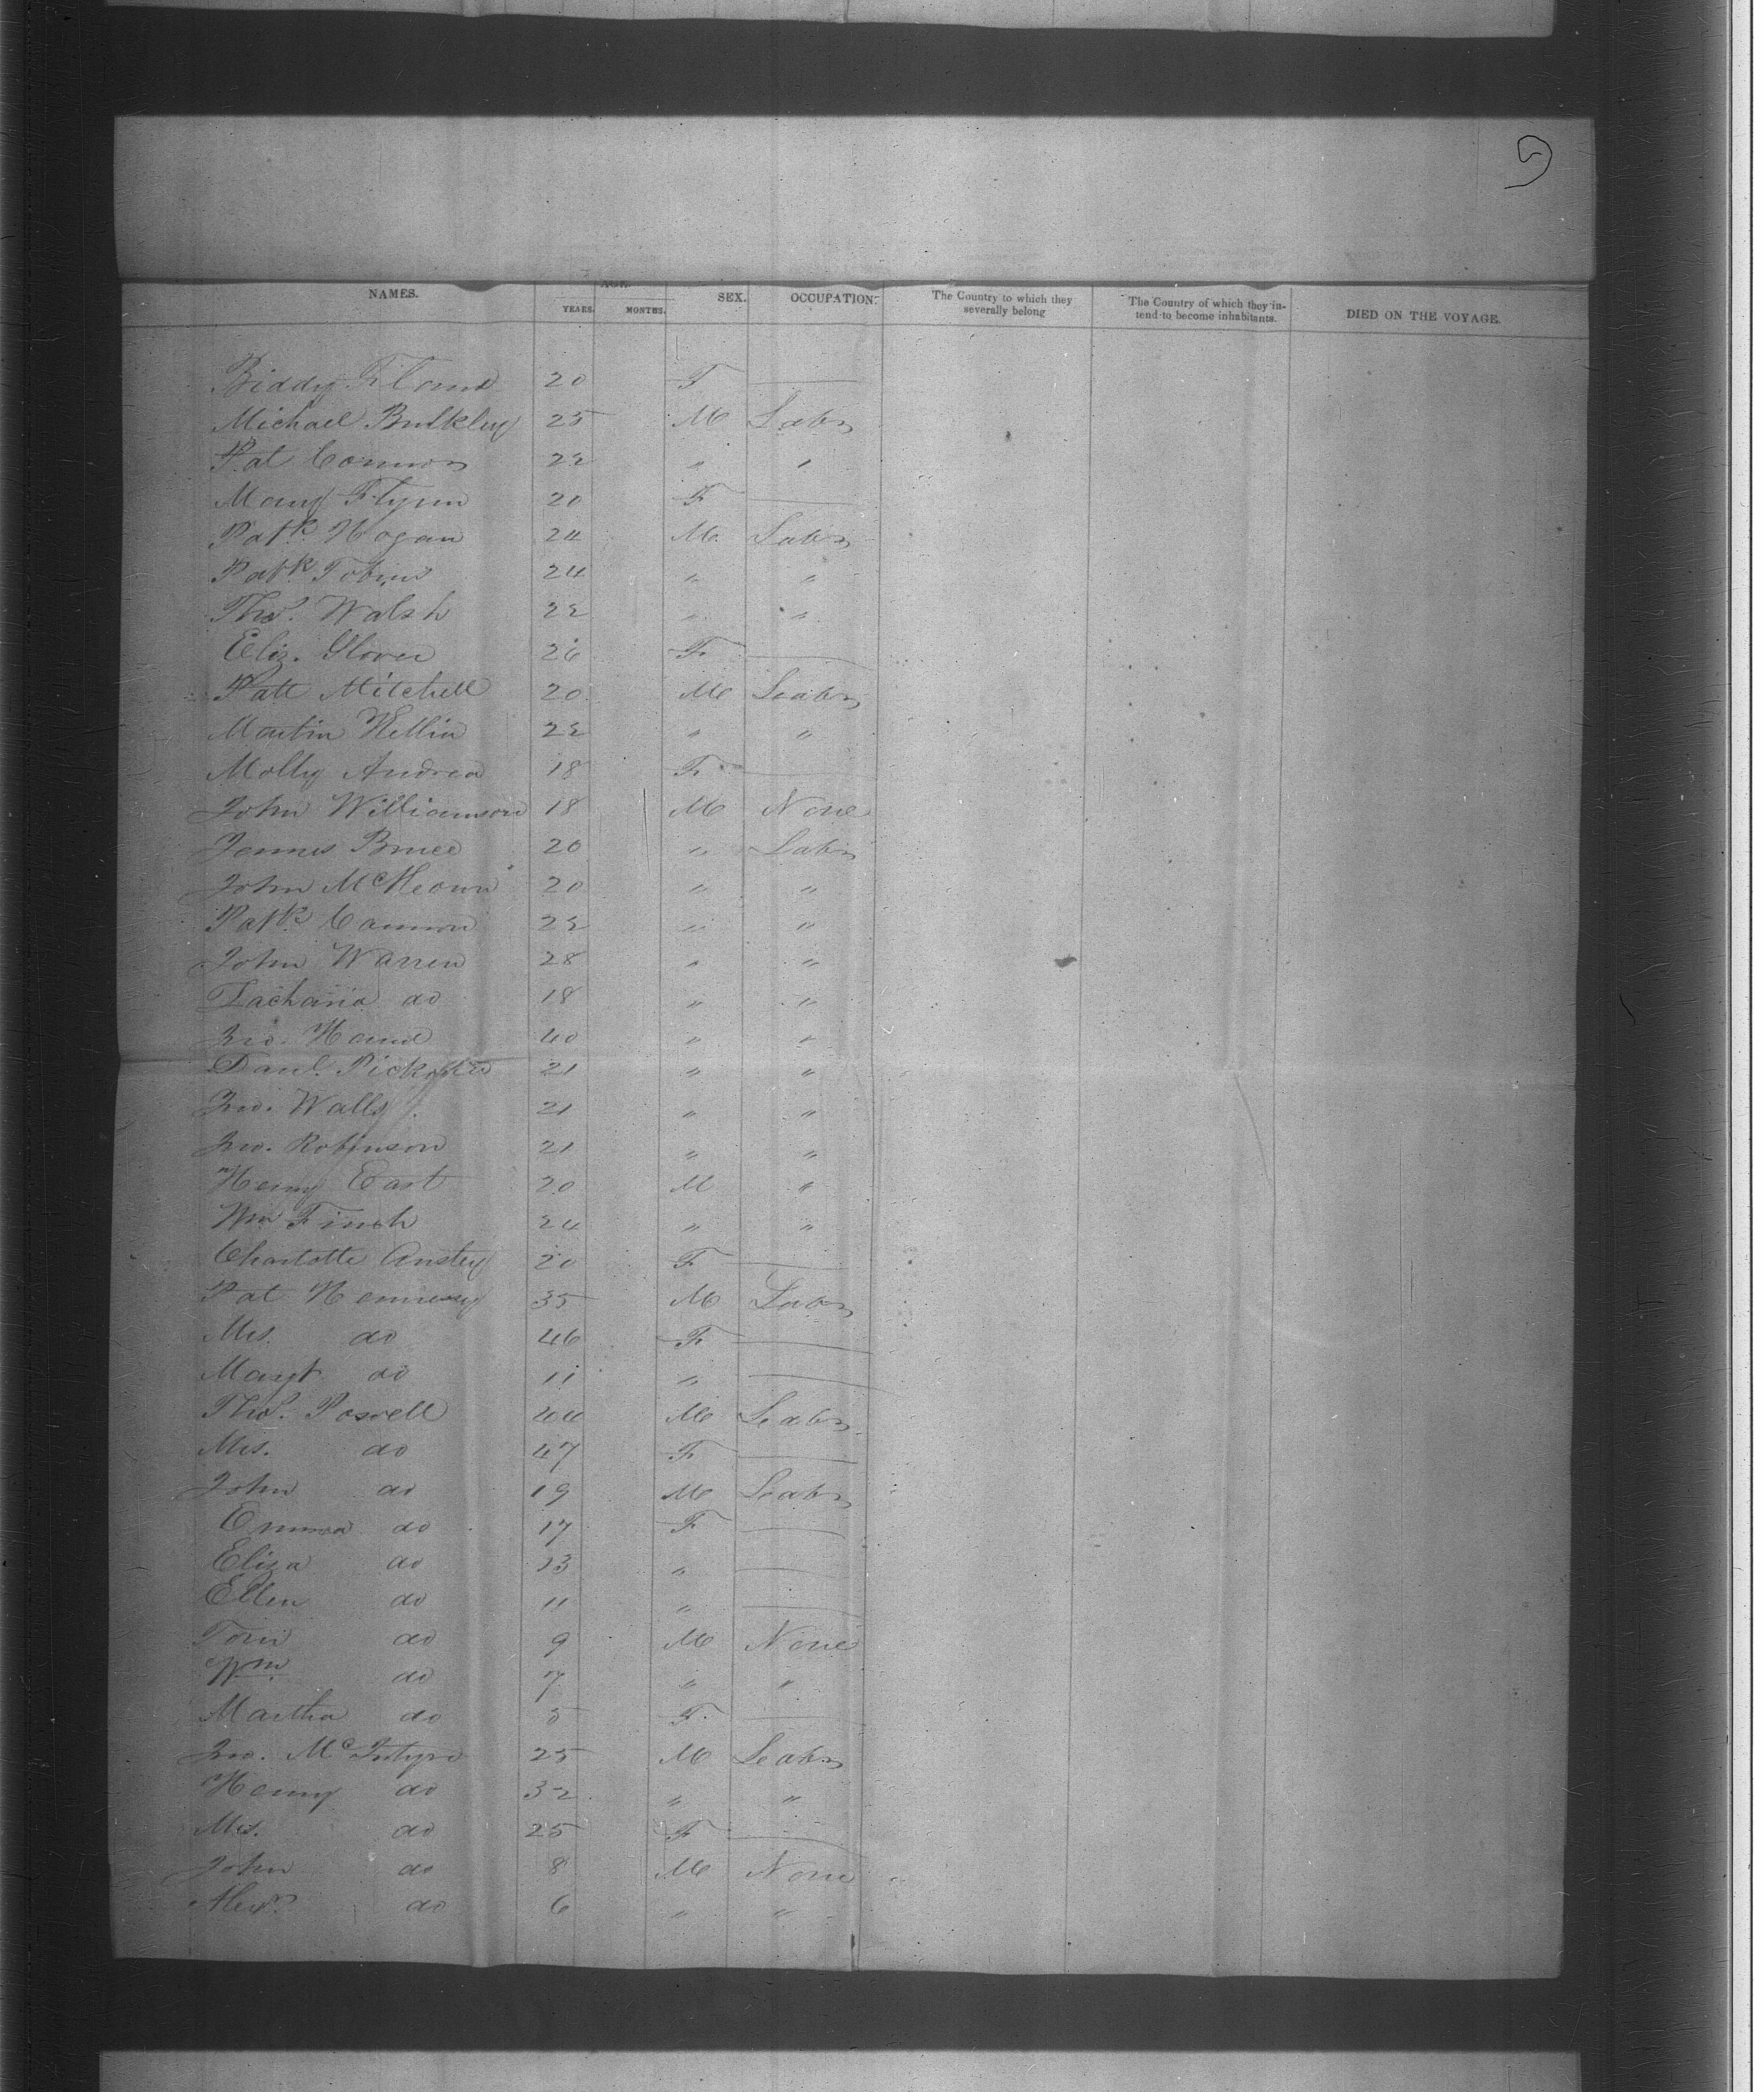 NAMES. AGE. YEARS. MONTHS. SEX. OCCUPATION. The Country to which they severally belong The Country of which they in-tend to become inhabitants. DIED ON THE VOYAGE.
Biddy 20 F —
Michael Bulkley 25 M Labr
Pat Connors 22 " "
Mary Flynn 20 F —
Patk Hogan 24 M Labr
Patk Tobin 24 " "
Thos. Walsh 22 " "
Eliz. Glover 26 F —
Patt Mitchell 20 M Labr
Martin 22 " "
Molly Andrea 18 F —
John Williamson 18 M None
James Bruce 20 " Labr
John 20 " "
Patk Cannon 22 " "
John Warren 28 " "
Zacharia do 18 " "
Jno. Hand 40 " "
Danl. 21 " "
Jno. Walls 21 " "
Jno. Robinson 21 " "
Henry East 20 M "
Wm Finch 24 " "
Charlotte Anstey 20 F —
Pat Hennessy 35 M Labr
Mrs. do 46 F —
Margt do 11 " —
Thos. Powell 44 M Labr
Mrs. do 47 F —
John do 19 M Labr
Emma do 17 F —
Eliza do 13 " —
Ellen do 11 " —
Tom do 9 M None
Wm do 7 " "
Martha do 5 F —
Jno. McIntyre 25 M Labr
Henry do 32 " "
Mrs. do 25 F —
John do 8 M None
Alexr do 6 " "